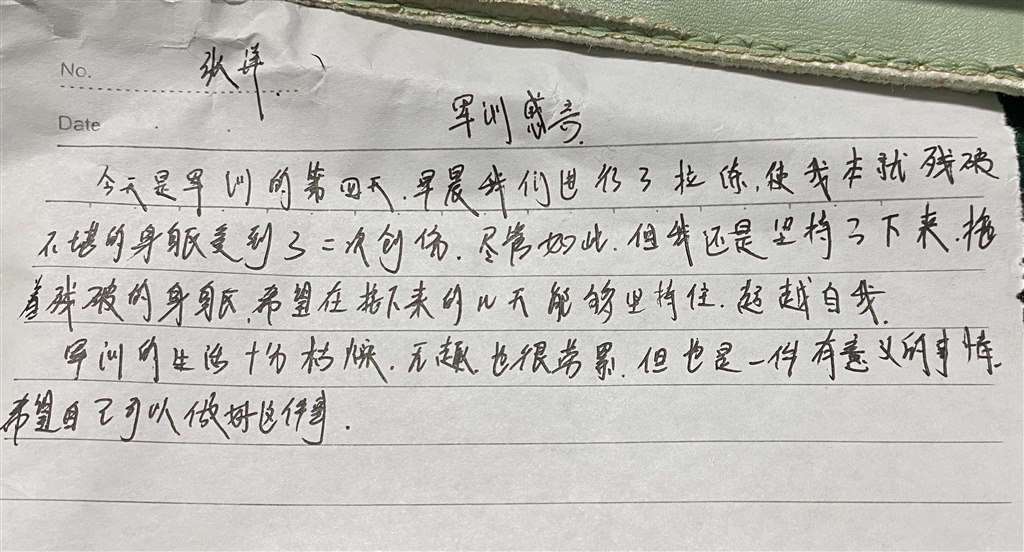 No. 张洋
Date
军训感言
今天是军训的第四天.早晨我们进行了拉练,使我本就残破
不堪的身躯受到了二次创伤.尽管如此.但我还是坚持了下来.拖
着残破的身躯.希望在接下来的几天能够坚持住.超越自我.
军训的生活十分枯燥.无趣.也很劳累.但也是一件有意义的事情.
希望自己可以做好这件事.